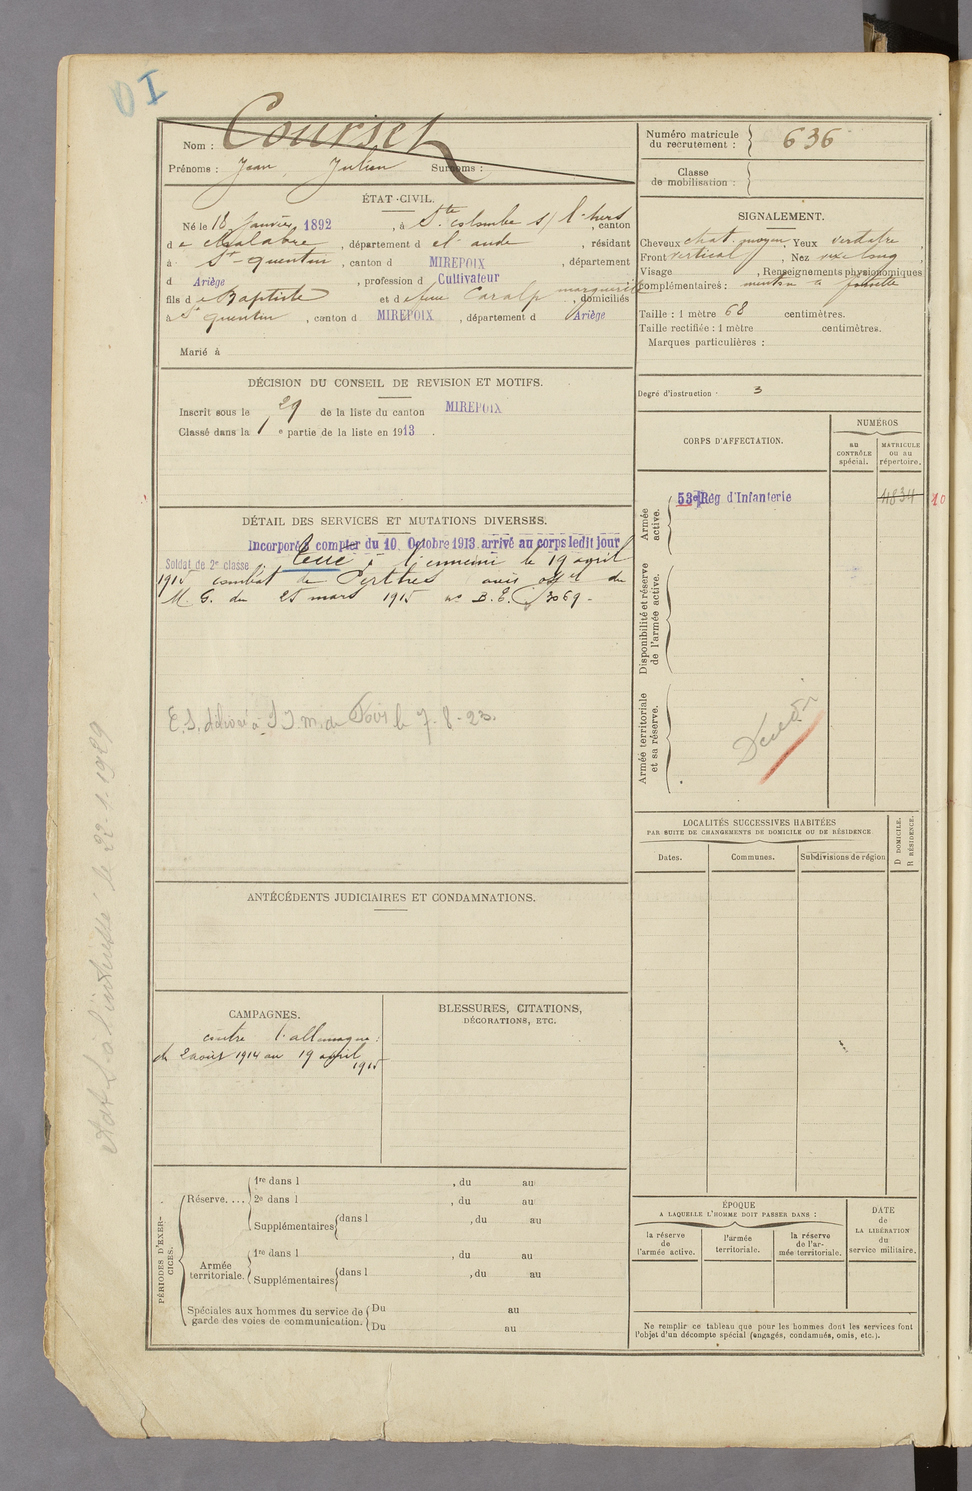 Nom : Courset
Prénoms : Jean, Julien Surnoms :
Numéro matricule du recrutement : 636
Classe de mobilisation :
ÉTAT-CIVIL.
Né le 18 Janvier 1892, à Ste colombe s/ l'hers, canton
de Chalabre, département de l'aude, résidant
à St-quentin, canton d MIREPOIX, département
d Ariège, profession d Cultivateur
fils de Baptiste et de Caralp marguerite, domiciliés
à St quentin, canton d MIREPOIX, département d Ariège
Marié à
SIGNALEMENT.
Cheveux chat. moyen, Yeux verdatre,
Front vertical, Nez long
Visage , Renseignements physionomiques
complémentaires : menton à fossette
Taille : 1 mètre 68 centimètres.
Taille rectifiée : 1 mètre centimètres.
Marques particulières :
Degré d'instruction : 3
DÉCISION DU CONSEIL DE REVISION ET MOTIFS.
Inscrit sous le n° 29 de la liste du canton MIREPOIX
Classé dans la 1e partie de la liste en 1913.
CORPS D'AFFECTATION.
NUMÉROS
AU CONTRÔLE spécial.
MATRICULE OU AU répertoire.
Armée active.
53e Rég d'Infanterie 4834 10
Disponibilité et réserve de l'armée active.
Armée territoriale et sa réserve.
DÉTAIL DES SERVICES ET MUTATIONS DIVERSES.
Incorporé à compter du 10 Octobre 1913 arrivé au corps ledit jour
Soldat de 2e classe. Tué à l'ennemi le 19 avril
1915 combat de Perthes avis offel du
M. G. du 25 mars 1915 n° B. E. 3069.
E.S. délivré à S I m. de Foix le 7-8-23.
le 22-1-1929
LOCALITÉS SUCCESSIVES HABITÉES
PAR SUITE DE CHANGEMENTS DE DOMICILE OU DE RÉSIDENCE
Dates. Communes. Subdivisions de région D DOMICILE. R RÉSIDENCE.
ANTÉCÉDENTS JUDICIAIRES ET CONDAMNATIONS.
CAMPAGNES.
contre l'allemagne :
du 2 août 1914 au 19 avril
1915
BLESSURES, CITATIONS,
DÉCORATIONS, ETC.
PÉRIODES D'EXERCICES.
Réserve.... 1re dans l , du au
2e dans l , du au
Supplémentaires dans l , du au
Armée territoriale. 1re dans l , du au
Supplémentaires dans l , du au
Spéciales aux hommes du service de garde des voies de communication. Du au
Du au
ÉPOQUE
A LAQUELLE L'HOMME DOIT PASSER DANS :
la réserve de l'armée active. l'armée territoriale. la réserve de l'armée territoriale.
DATE de LA LIBÉRATION du service militaire.
Ne remplir ce tableau que pour les hommes dont les services font
l'objet d'un décompte spécial (engagés, condamnés, omis, etc.).